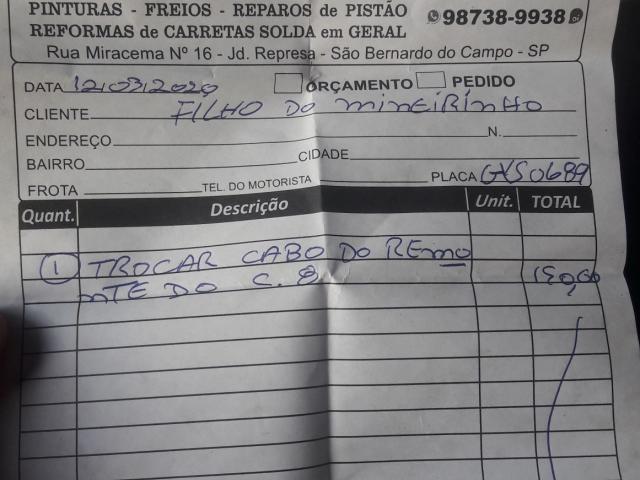 PINTURAS - FREIOS - REPAROS de PISTÃO
REFORMAS de CARRETAS SOLDA em GERAL
98738-9938
Rua Miracema Nº 16 - Jd. Represa - São Bernardo do Campo - SP
DATA 12/03/2020 ORÇAMENTO PEDIDO
CLIENTE FILHO DO MINEIRINHO
ENDEREÇO N.
BAIRRO CIDADE
FROTA TEL. DO MOTORISTA PLACA GXS0689
Quant. Descrição Unit. TOTAL
1 TROCAR CABO DO REMO
NTE DO C. 8